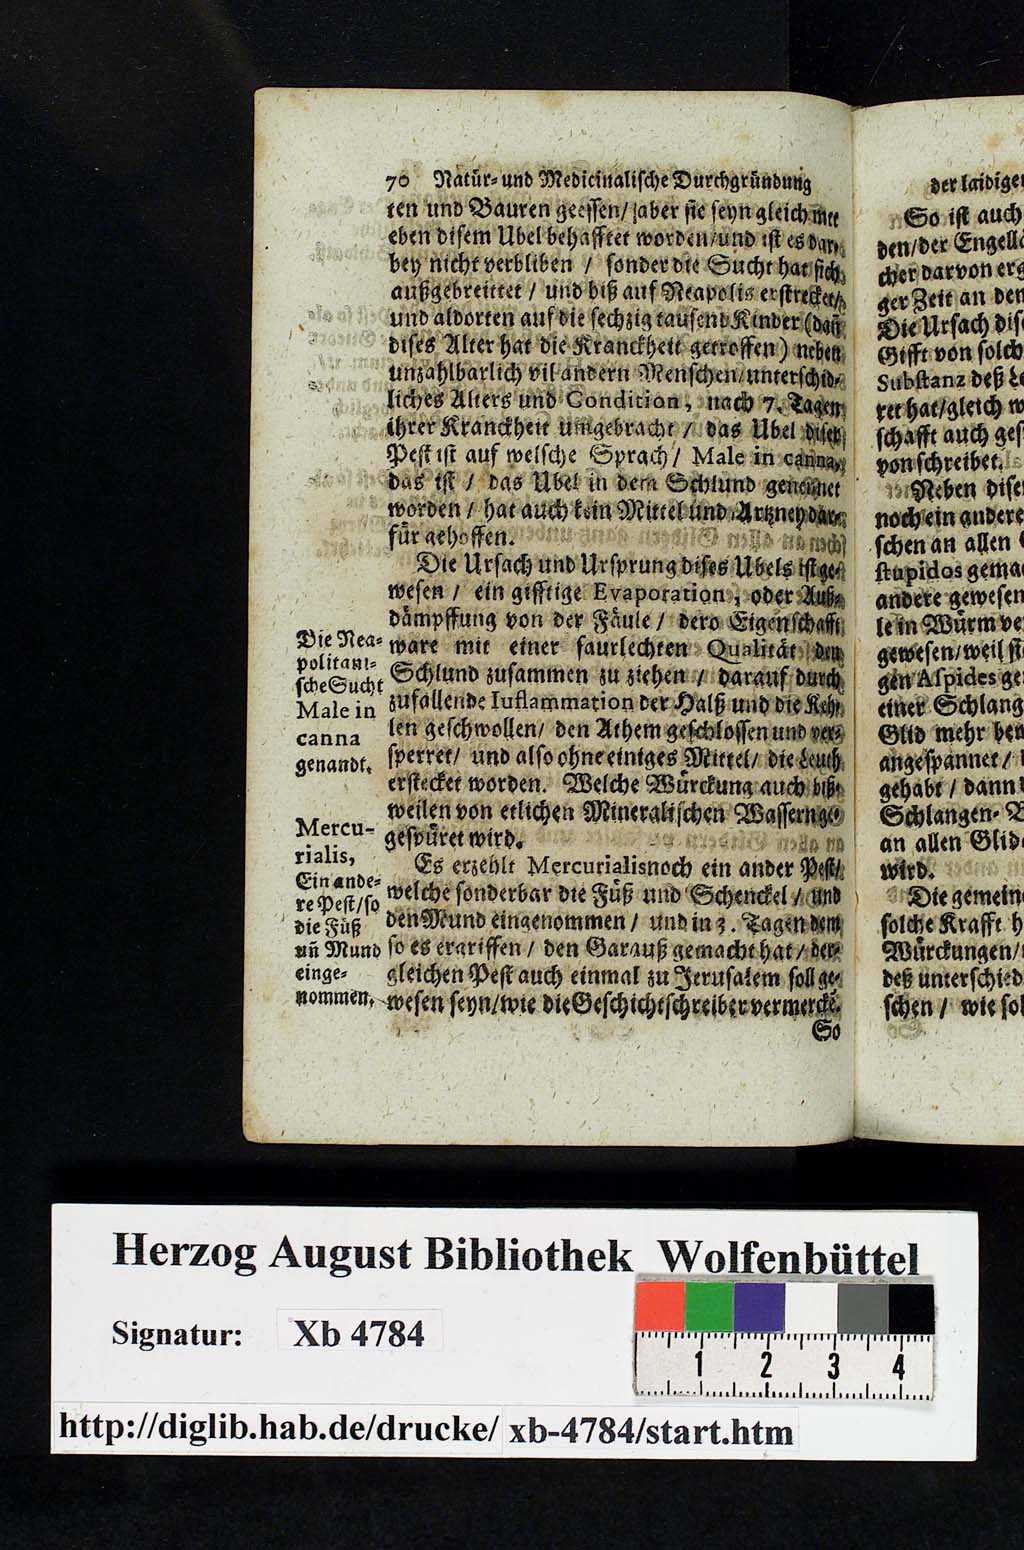 70 Natür- und Medicinalische Durchgründung
ten und Bauren geessen/ jaber sie seyn gleich mit
eben disem Ubel behafftet worden/ und ist es dar-
bey nicht verbliben / sonder die Sucht hat sich
außgebreittet / und biß auf Neapolis erstrecket/
und aldorten auf die sechzig tausent Kinder (dañ
dises Alter hat die Kranckheit getroffen) neben
unzahlbarlich vil andern Menschen/ unterschid-
liches Alters und Condition, nach 7. Tagen
ihrer Kranckheit umgebracht / das Ubel diser
Pest ist auf welsche Sprach/ Male in canna,
das ist / das Ubel in dem Schlund genennet
worden / hat auch kein Mittel und Artzney dar-
für geholffen.
Die Ursach und Ursprung dises Ubels ist ge-
wesen / ein gifftige Evaporation, oder Auß-
dämpffung von der Fäule / dero Eigenschafft
ware mit einer saurlechten Qualität den
Schlund zusammen zu ziehen / darauf durch
zufallende Iuflammation der Halß und die Keh-
len geschwollen/ den Athem geschlossen und ver-
sperret/ und also ohne einiges Mittel/ die Leuth
erstecket worden. Welche Würckung auch biß-
weilen von etlichen Mineralischen Wassern ge-
gespüret wird.
Es erzehlt Mercurialis noch ein ander Pest/
welche sonderbar die Füß und Schenckel / und
den Mund eingenommen / und in 3. Tagen dem
so es ergriffen / den Garauß gemacht hat / der-
gleichen Pest auch einmal zu Jerusalem soll ge-
wesen seyn/ wie die Geschichtschreiber vermerckẽ.
So
Die Nea-
politani-
sche Sucht
Male in
canna
genandt.
Mercu-
rialis,
Ein ande-
re Pest/ so
die Füß
uñ Mund
einge-
nommen.
der laidigen
So ist auch
den/ der Engellä
cher darvon erg
ger Zeit an den
Die Ursach dise
Gifft von solch
Substanz deß Le
ret hat/ gleich w
schafft auch ges
von schreibet.
Neben disen
noch ein andere
schen an allen G
stupidos gemac
andere gewesen
le in Würm ver
gewesen/ weil sie
gen Aspides ge
einer Schlang
Glid mehr bew
angespannet /
gehabt / dann
Schlangen-B
an allen Glide
wird.
Die gemein
solche Krafft h
Würckungen/
deß unterschied
schen / wie sol
Herzog August Bibliothek Wolfenbüttel
Signatur: Xb 4784
1 2 3 4
http://diglib.hab.de/drucke/ xb-4784/start.htm